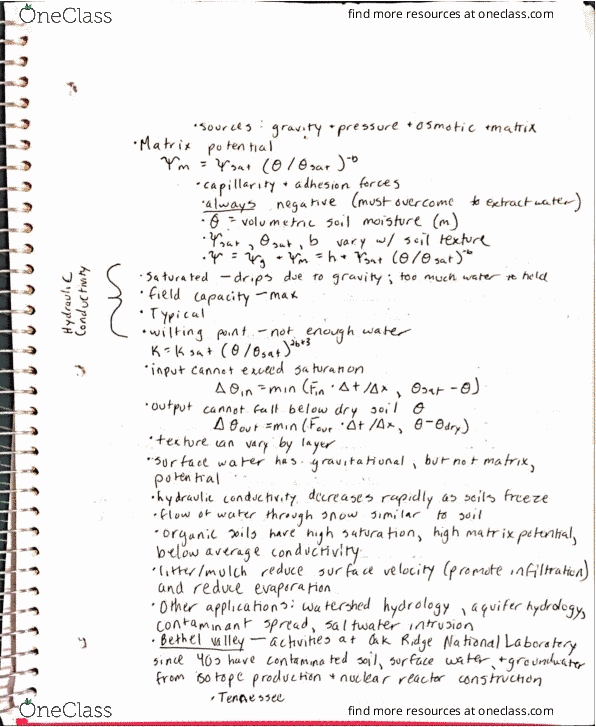 OneClass
find more resources at oneclass.com
• sources : gravity + pressure + osmotic + matrix
• Matrix potential
Ψm = Ψsat (θ/θsat)^-b
• capillarity + adhesion forces
• always negative (must overcome to extract water)
• θ = volumetric soil moisture (m)
• Ψsat, θsat, b vary w/ soil texture
• Ψ = Ψg + Ψm = h + Ψsat (θ/θsat)^-b
Hydraulic Conductivity
• saturated – drips due to gravity ; too much water to hold
• field capacity – max
• Typical
• wilting point – not enough water
K = Ksat (θ/θsat)^2b+3
• input cannot exceed saturation
Δθin = min (Fin · Δt/Δx, θsat – θ)
• output cannot fall below dry soil θ
Δθout = min (Fout · Δt/Δx, θ – θdry)
• texture can vary by layer
• surface water has gravitational, but not matrix,
potential
• hydraulic conductivity decreases rapidly as soils freeze
• flow of water through snow similar to soil
• organic soils have high saturation, high matrix potential,
below average conductivity
• litter/mulch reduce surface velocity (promote infiltration)
and reduce evaporation
• Other applications: watershed hydrology, aquifer hydrology,
contaminant spread, saltwater intrusion
• Bethel Valley – activities at Oak Ridge National Laboratory
since 40s have contaminated soil, surface water, + groundwater
from isotope production + nuclear reactor construction
• Tennessee
OneClass
find more resources at oneclass.com